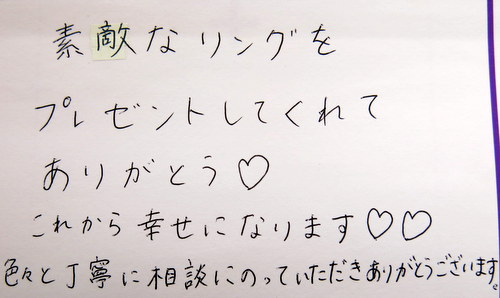 素敵なリングを
プレゼントしてくれて
ありがとう♡
これから幸せになります♡♡
色々と丁寧に相談にのっていただきありがとうございます。